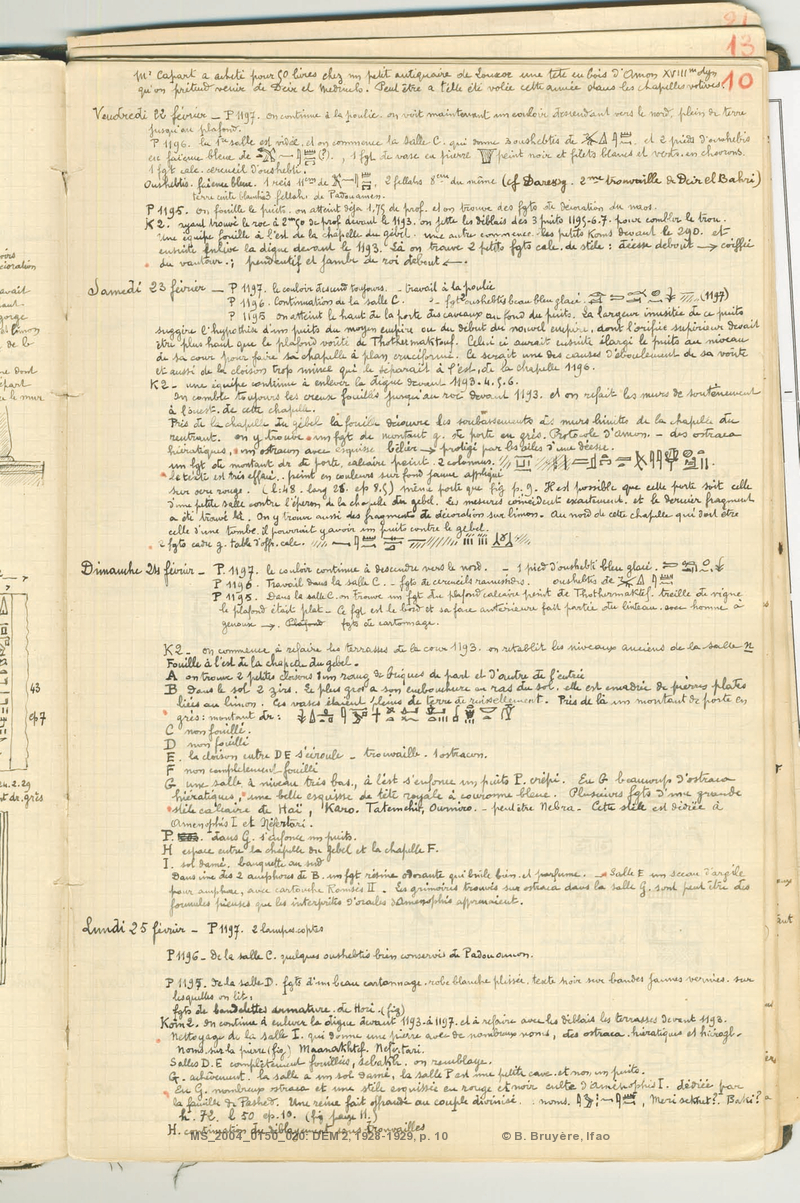 21
13
10
Mr Capart a acheté pour 50 livres chez un petit antiquaire de Louxor une tête en bois d'Amon XVIIIme dyn
qu'on prétend venir de Deir el Medineh. Peut être a t'elle été volée cette année dans les chapelles votives.
Vendredi 22 février _ P 1197. on continue à la poulie. on voit maintenant un couloir descendant vers le nord, plein de terre
jusqu'au plafond.
P 1196. la 1re salle est vidée, et on commence la Salle C. qui donne 3 oushebtis de et 2 pieds d'oushebtis
en faïence bleue de (?)., 1 fgt de vase en pierre peint noir et filets blancs et verts. en chevrons.
1 fgt calc. cercueil d'oushebti.
Oushebtis. faïence bleue. 1 reis 11em de , 2 fellahs 8em du même (cf Daressy. 2me trouvaille de Deir El Bahri)
terre cuite blanche 3 fellahs. de Padouamen.
P 1195. on fouille le puits. on atteint déja 1,75 de prof. et on trouve des fgts de décoration du naos.
K2. ayant trouvé le roc à 2m50 de prof devant le 1193. on jette les déblais des 3 puits 1195-6.7. pour combler le trou.
une équipe fouille à l'est de la chapelle du gébel. une autre commence les petits Koms devant le 290. et
ensuite enlève la digue devant le 1193. Là on trouve 2 petits fgts calc. de stèle : déesse debout → coiffée
du vautour. ; pendentif et jambe de roi debout ←.
Samedi 23 février _ P 1197. le couloir descend toujours. - travail à la poulie
P 1196. Continuation de la salle C. - fgt oushebtis beau bleu glacé. (1197)
P 1195 on atteint le haut de la porte des caveaux au fond du puits. La largeur inusitée de ce puits
suggère l'hypothèse d'un puits du moyen empire ou du début du nouvel empire, dont l'orifice supérieur devait
être plus haut que le plafond voûté de Thothermaktouf. Celui ci aurait ensuite élargi le puits au niveau
de sa cour pour faire sa chapelle à plan cruciforme. Ce serait une des causes d'éboulement de sa voûte
et aussi de la cloison trop mince qui le séparait à l'est de la chapelle 1196.
K2 - une équipe continue à enlever la digue devant 1193-4.5.6.
On comble toujours les creux fouillés jusqu'au roc devant 1193. et on refait les murs de soutènement
à l'ouest de cette chapelle.
Près de la chapelle du gébel la fouille découvre les soubassements des murs limites de la chapelle du
rentrant. on y trouve un fgt de montant g. de porte en grès. Protocole d'Amon. - des ostraca
hiératiques, un ostracon avec esquisse bélier → protégé par les ailes d'une déesse.
un fgt de montant dr de porte, calcaire peint. 2 colonnes.
le texte est très effacé. peint en couleurs sur fond jaune appliqué
sur ocre rouge. (l: 48. larg 28. ep 8.5) même porte que fig p. 9. Il est possible que cette porte soit celle
d'une petite salle contre l'éperon de la chapelle du gebel. Les mesures coïncident exactement. et le dernier fragment
a été trouvé là. On y trouve aussi des fragments de décoration sur limon. Au nord de cette chapelle qui doit être
celle d'une tombe, il pourrait y avoir un puits contre le gebel.
2 fgts cadre g. table d'off. calc.
Dimanche 24 février _ P 1197. le couloir continue à descendre vers le nord. - 1 pied d'oushebti bleu glacé.
P 1196. Travail dans la salle C. - fgts de cercueils ramessides. oushebtis de
P 1195. Dans la salle C. on trouve un fgt du plafond calcaire peint de Thothermaktef. treille de vigne
le plafond était plat - Ce fgt est le bord et sa face antérieure fait partie du linteau. avec homme à
genoux →. fgts de cartonnage.
K2 _ on commence à refaire les terrasses de la cour 1193. on rétablit les niveaux anciens de la salle n
Fouille à l'est de la chapelle du gebel.
A on trouve 2 petites cloisons d'un rang de briques de part et d'autre de l'entrée
B Dans le sol 2 zirs. Le plus gros a son embouchure au ras du sol. elle est encadrée de pierres plates
liées au limon. Ces vases étaient pleins de terre de ruissellement. Près de là un montant de porte en
grès: montant dr:
C non fouillé.
D non fouillé
E. la cloison entre D E s'écroule - trouvaille. 1 ostracon.
F non complètement fouillé
G une salle à niveau très bas., à l'est s'enfonce un puits P. crépi. En G beaucoup d'ostraca
hiératiques, une belle esquisse de tête royale à couronne bleue. Plusieurs fgts d'une grande
stèle calcaire de Haï, Karo. Tatemehit, Ourniro. - peut être Nebra. - Cette stèle est dédiée à
Amenophis I et Néfertari.
P. dans G. s'enfonce un puits.
H espace entre la chapelle du gebel et la chapelle F.
I. sol damé, banquette au sud
Dans une des 2 amphores de B. un fgt résine odorante qui brûle bien et parfume. - Salle E un sceau d'argile
pour amphore, avec cartouche Ramsès II - Les grimoires trouvés sur ostraca dans la salle G. sont peut être des
formules pieuses que les interprètes d'oracles d'Amenophis apprenaient.
Lundi 25 février _ P 1197. 2 lampes coptes
P 1196 - de la salle C. quelques oushebtis bien conservés de Padouamon.
P 1195. de la salle D. fgts d'un beau cartonnage. robe blanche plissée, texte noir sur bandes jaunes vernies. sur
lesquelles on lit:
fgts de bandelettes armature. de Hori. (fig)
Kom 2. On continue à enlever la digue devant 1193-à 1197. et à refaire avec les déblais les terrasses devant 1193.
Nettoyage de la salle I. qui donne une pierre avec de nombreux noms, des ostraca hiératiques et hiérogl.
Noms sur la pierre (fig) Maanakhtef. Nefertari.
Salles D. E complètement fouillées, sebakh. on remblaye.
G. achèvement. la salle a un sol damé, la salle P est une petite cave et non un puits.
En G. nombreux ostraca et une stèle esquissée en rouge et noir culte d'Amenophis I. dédiée par
la famille de Pashed. Une reine fait offrande au couple divinisé. : noms. , Meri sekhet?. Baki?
h. 72. l 50 ep. 10. (fig page 11.)
H. continuation du déblayement sans trouvailles
43
ep 7
24.2.29
MS_2004_0150_020: DEM 2, 1928-1929, p. 10
© B. Bruyère, Ifao